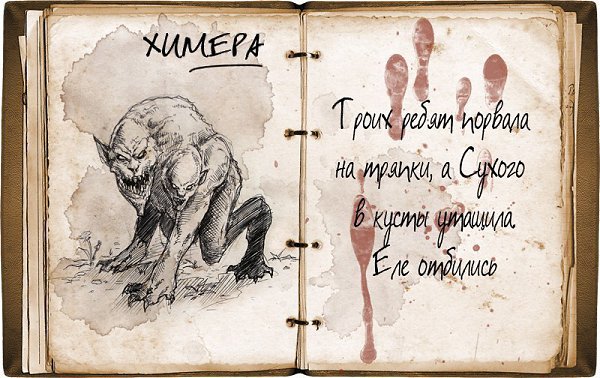 ХИМЕРА
Троих ребят порвала
на тряпки, а Сухого
в кусты утащила
Еле отбились